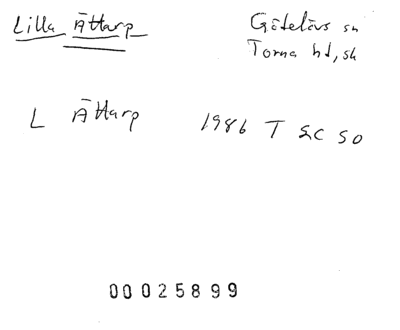 Lilla Ättarp
Götelövs sn
Torna hd, sk
L Ättarp 1986 T &C SO
00025899